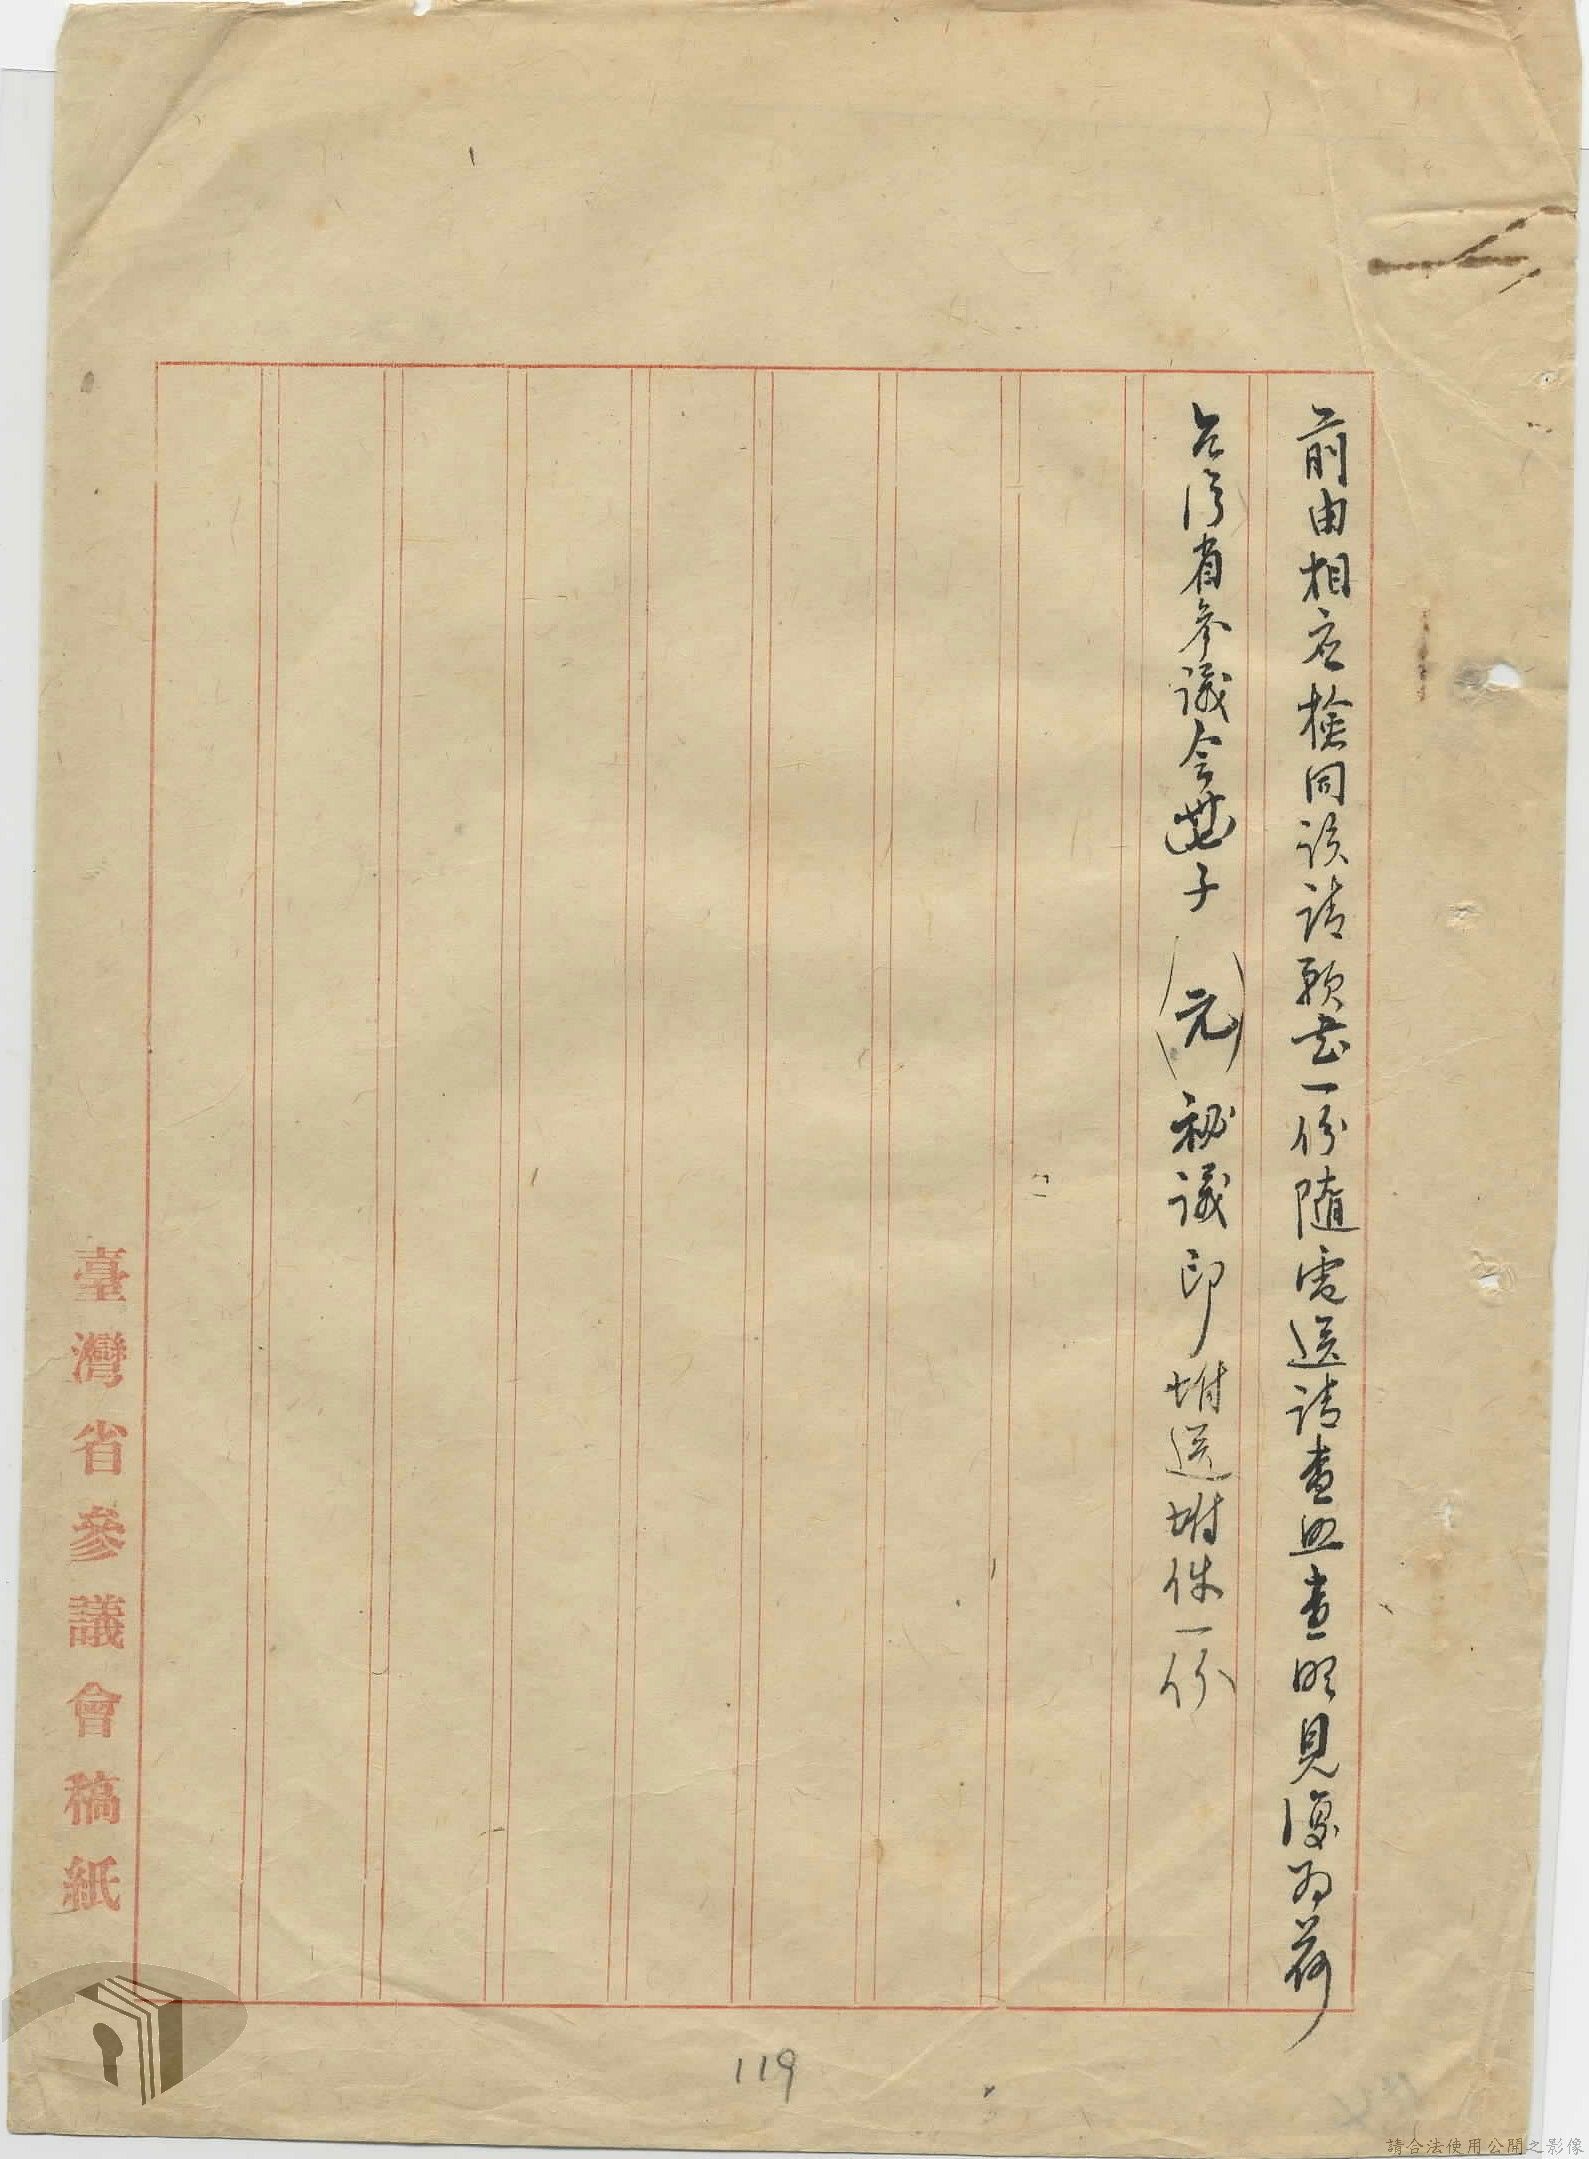 前由相应檢同該請願書一份隨電送請查照查明見復為荷
台湾省参議会子（元）秘議印坿送坿件一份
臺灣省參議會稿紙
119
請合法使用公開之影像